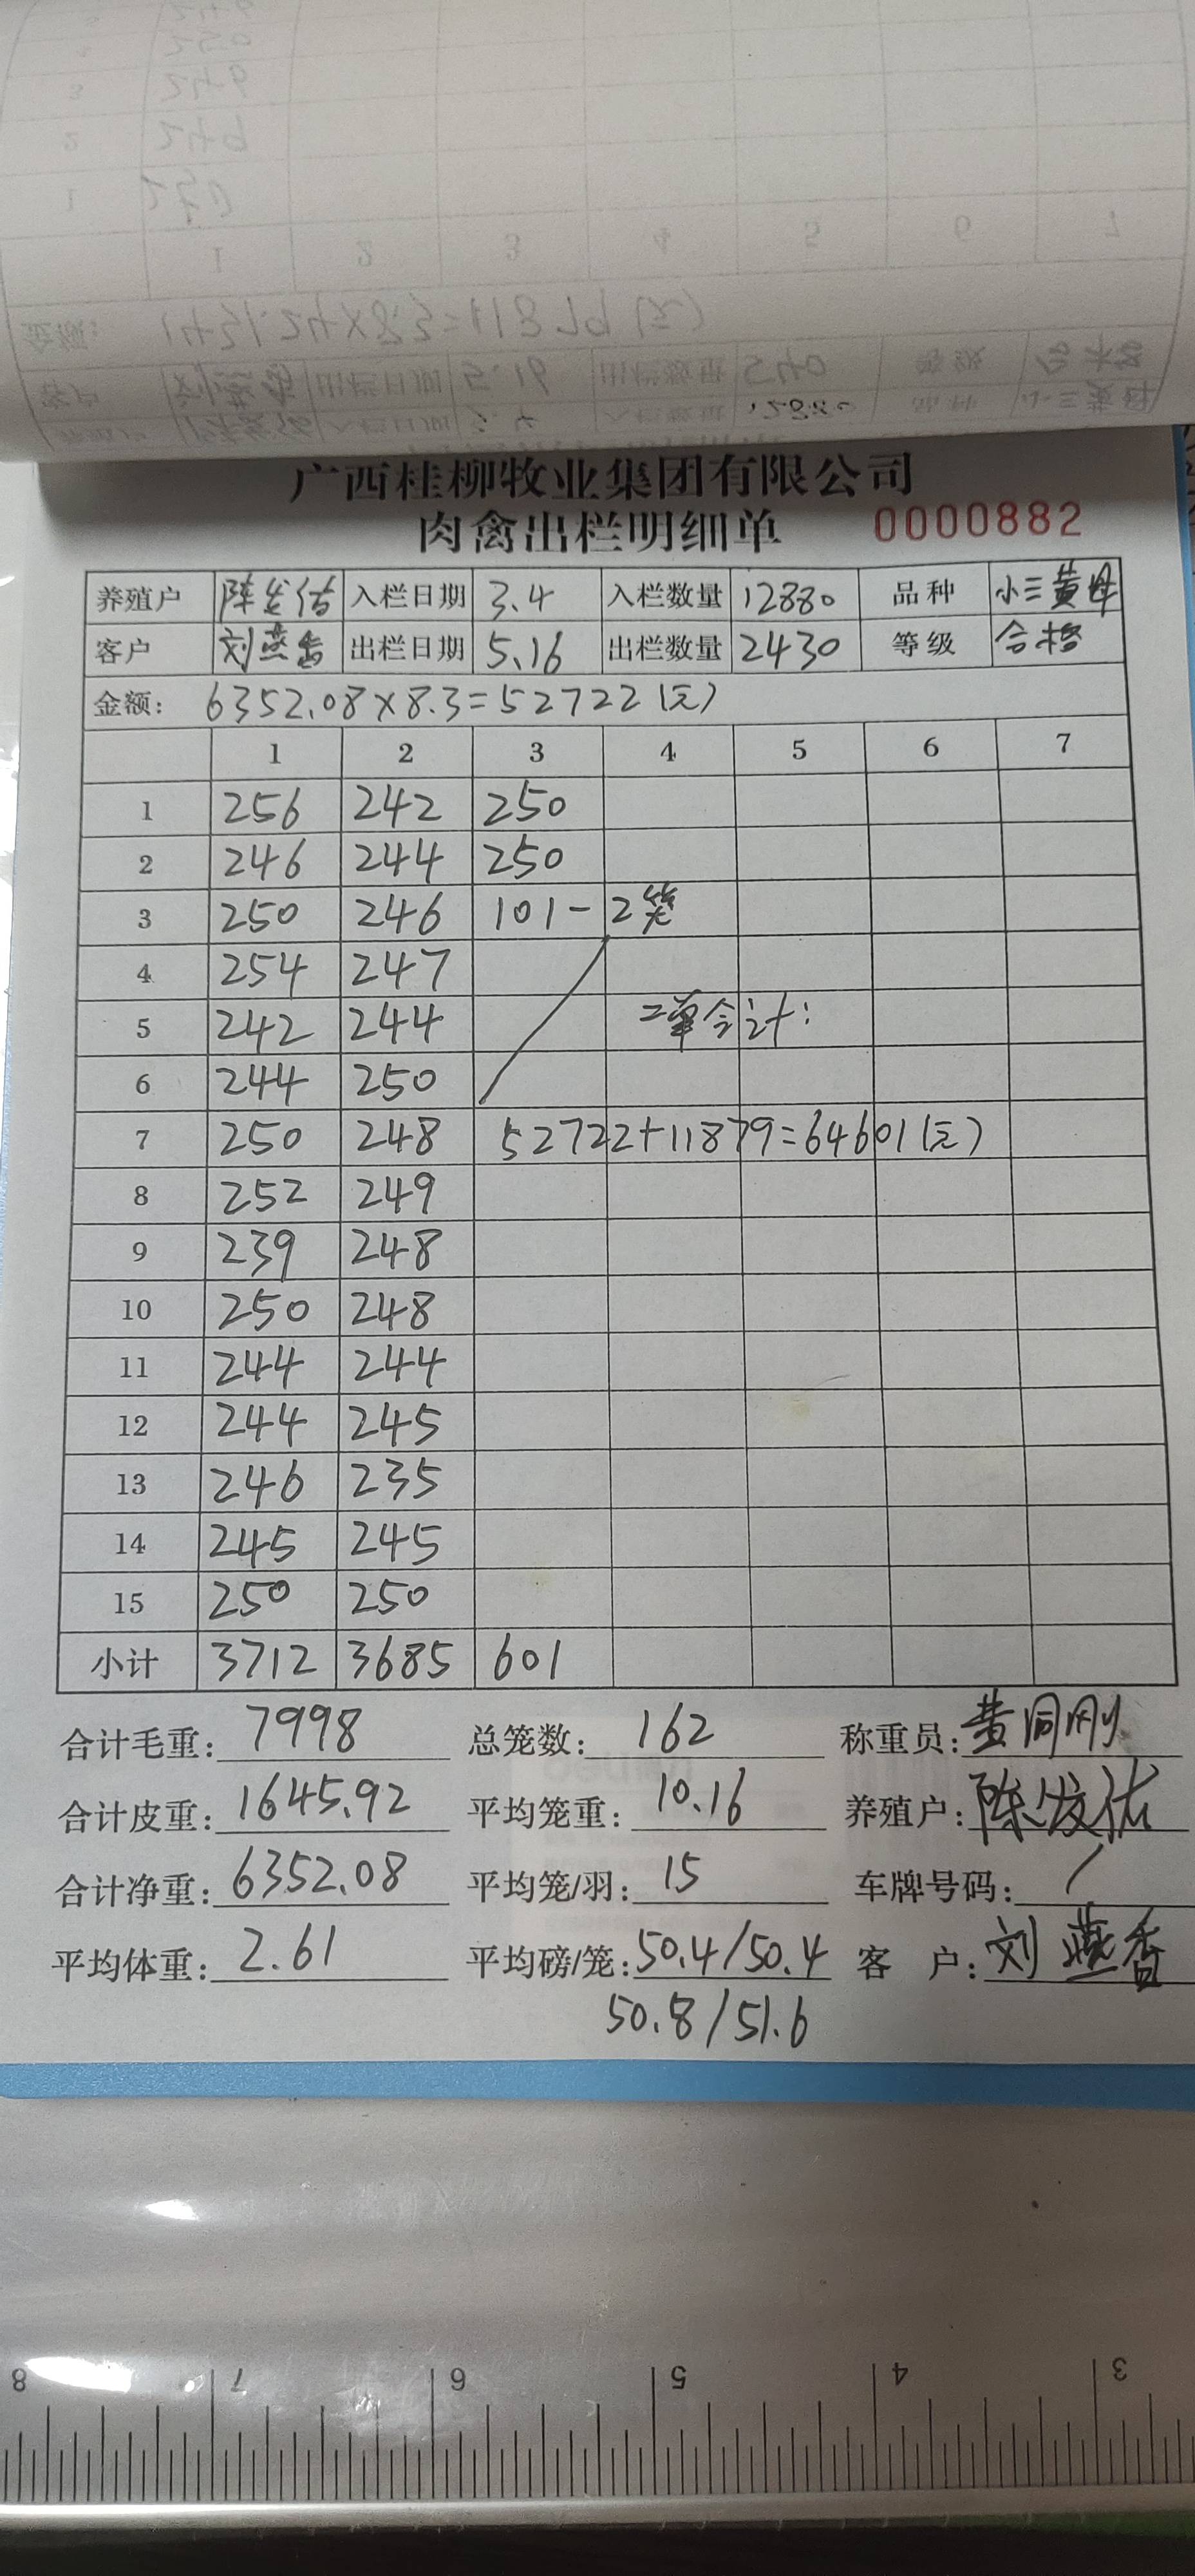 广西桂柳牧业集团有限公司
肉禽出栏明细单 0000882
养殖户 陈发佑 入栏日期 3.4 入栏数量 12880 品种 小三黄母
客户 刘燕香 出栏日期 5.16 出栏数量 2430 等级 合格
金额: 6352.08×8.3=52722(元)
1 2 3 4 5 6 7
1 256 242 250
2 246 244 250
3 250 246 101-2笼
4 254 247
5 242 244 二单合计:
6 244 250
7 250 248 52722+11879=64601(元)
8 252 249
9 239 248
10 250 248
11 244 244
12 244 245
13 246 235
14 245 245
15 250 250
小计 3712 3685 601
合计毛重: 7998 总笼数: 162 称重员: 黄洞刚
合计皮重: 1645.92 平均笼重: 10.16 养殖户: 陈发佑
合计净重: 6352.08 平均笼/羽: 15 车牌号码: /
平均体重: 2.61 平均磅/笼: 50.4/50.4 客 户: 刘燕香
50.8/51.6
8 7 6 5 4 3